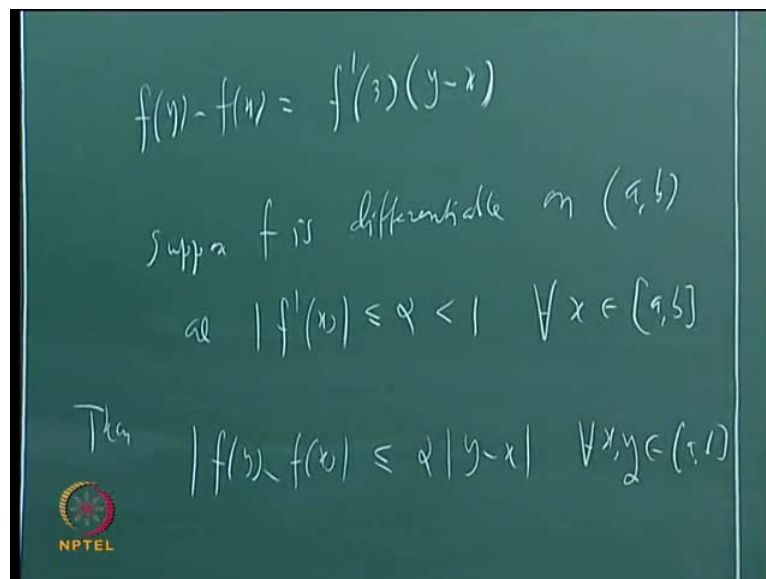 f(y) - f(x) = f'(3)(y-x)
Suppose f is differentiable on (a,b)
as |f'(x)| ≤ α < 1 ∀ x ∈ [a,b]
Then |f(y) - f(x)| ≤ α |y-x| ∀ x,y ∈ (a,b)
NPTEL